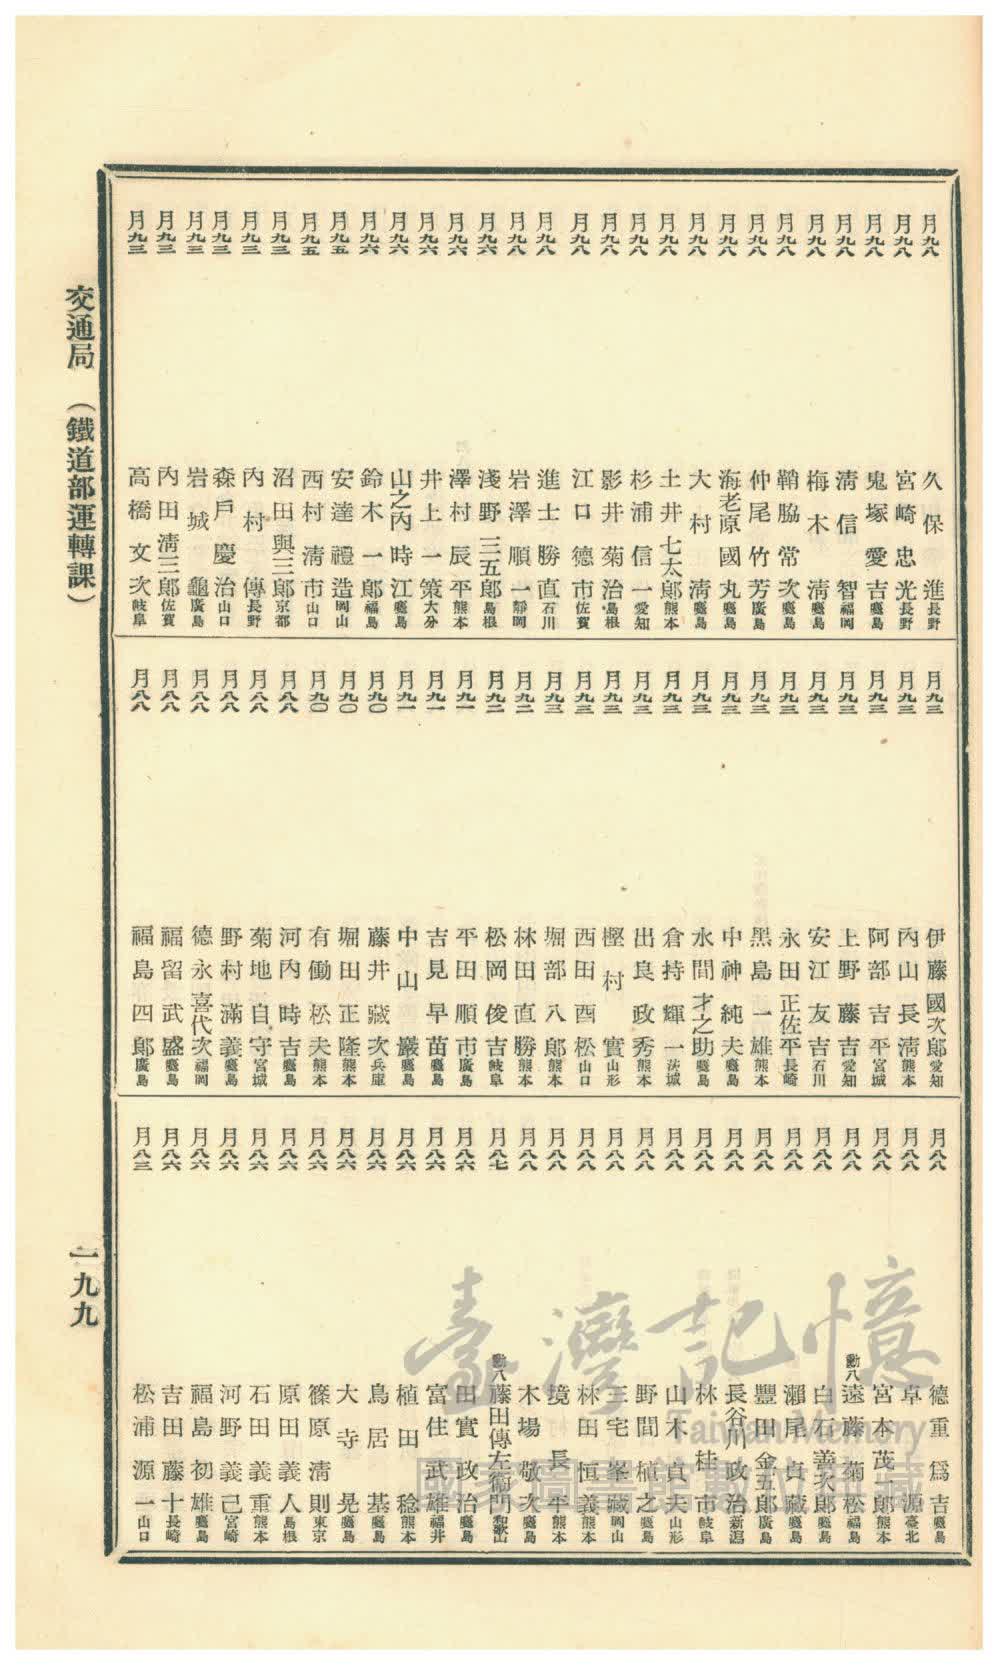 月九八 久保進 長野
月九八 宮崎忠光 長野
月九八 鬼塚愛吉 鹿兒島
月九八 淸信智 福岡
月九八 梅木淸 鹿兒島
月九八 鞘脇常次 鹿兒島
月九八 仲尾竹芳 廣島
月九八 海老原國丸 鹿兒島
月九八 大村淸 鹿兒島
月九八 土井七太郞 熊本
月九八 杉浦信一 愛知
月九八 影井菊治 島根
月九八 江口德市 佐賀
月九八 進士勝直 石川
月九八 岩澤順一 靜岡
月九六 淺野三五郞 島根
月九六 澤村辰平 熊本
月九六 井上一策 大分
月九六 山之內時江 鹿兒島
月九六 鈴木一郞 福島
月九五 安達禮造 岡山
月九五 西村淸市 山口
月九三 沼田與三郞 京都
月九三 內村傳 長野
月九三 森戶慶治 山口
月九三 岩城龜 廣島
月九三 內田淸三郞 佐賀
月九三 高橋文次 岐阜
月九三 伊藤國次郞 愛知
月九三 內山長淸 熊本
月九三 阿部吉平 宮城
月九三 上野藤吉 愛知
月九三 安江友吉 石川
月九三 永田正佐平 長崎
月九三 黑島一雄 熊本
月九三 中神純夫 鹿兒島
月九三 水間才之助 鹿兒島
月九三 倉持輝一 茨城
月九三 出良政秀 鹿兒島
月九三 樫村實 山形
月九三 西田酉松 山口
月九三 堀部八郞 熊本
月九二 林田直勝 熊本
月九二 松岡俊吉 岐阜
月九一 平田順市 廣島
月九一 吉見早苗 鹿兒島
月九一 中山巖 鹿兒島
月九〇 藤井藏次 兵庫
月九〇 堀田正隆 熊本
月九〇 有働松夫 熊本
月八八 河內時吉 鹿兒島
月八八 菊地自守 宮城
月八八 野村滿義 鹿兒島
月八八 德永喜代次 福岡
月八八 福留武盛 鹿兒島
月八八 福島四郞 廣島
月八八 德重爲吉 鹿兒島
月八八 卓源 臺北
月八八 宮本茂一郞 熊本
月八八 勳八 遠藤菊松 福島
月八八 白石善次郞 鹿兒島
月八八 瀨尾貞藏 鹿兒島
月八八 豐田金五郞 廣島
月八八 長谷川政治 新潟
月八八 林桂市 岐阜
月八八 山木貞夫 山形
月八八 野間植之 鹿兒島
月八八 三宅峯藏 岡山
月八八 林田恒義 熊本
月八八 境長平 熊本
月八八 木場敬次 鹿兒島
月八七 勳八 藤田傳左衞門 和歌山
月八六 田實政治 鹿兒島
月八六 富住武雄 福井
月八六 植田稔 熊本
月八六 鳥居基 鹿兒島
月八六 大寺晃 鹿兒島
月八六 篠原淸則 東京
月八六 原田義人 島根
月八六 石田義重 熊本
月八六 河野義己 宮崎
月八六 福島初雄 鹿兒島
月八六 吉田藤十 長崎
月八三 松浦源一 山口
交通局 （鐵道部運轉課）
一九九
臺灣記憶
Taiwan Memory
國家圖書館數位典藏